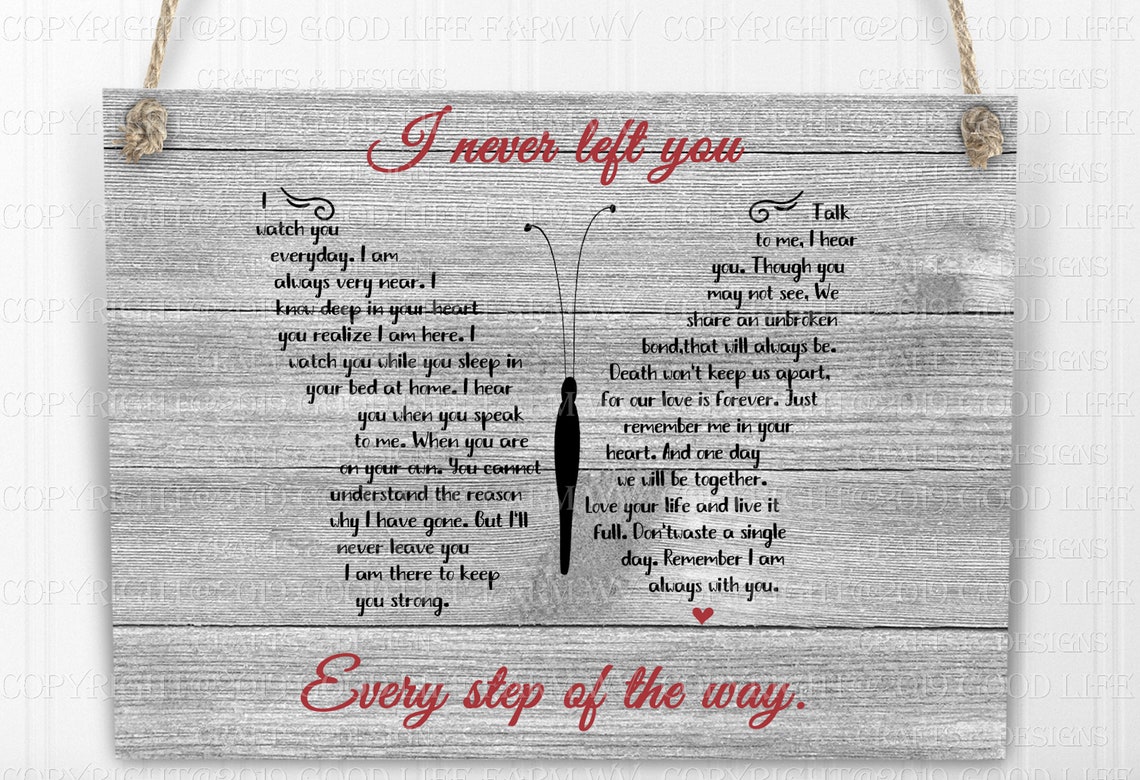 COPYRIGHT@2019 GOOD LIFE FARM WV
CRAFTS & DESIGNS
I never left you
I
watch you
everyday. I am
always very near. I
know deep in your heart
you realize I am here. I
watch you while you sleep in
your bed at home. I hear
you when you speak
to me. When you are
on your own. You cannot
understand the reason
why I have gone. But I'll
never leave you
I am there to keep
you strong.
Talk
to me, I hear
you. Though you
may not see, We
share an unbroken
bond,that will always be.
Death won't keep us apart,
For our love is forever. Just
remember me in your
heart. And one day
we will be together.
Love your life and live it
full. Don'twaste a single
day. Remember I am
always with you.
Every step of the way.